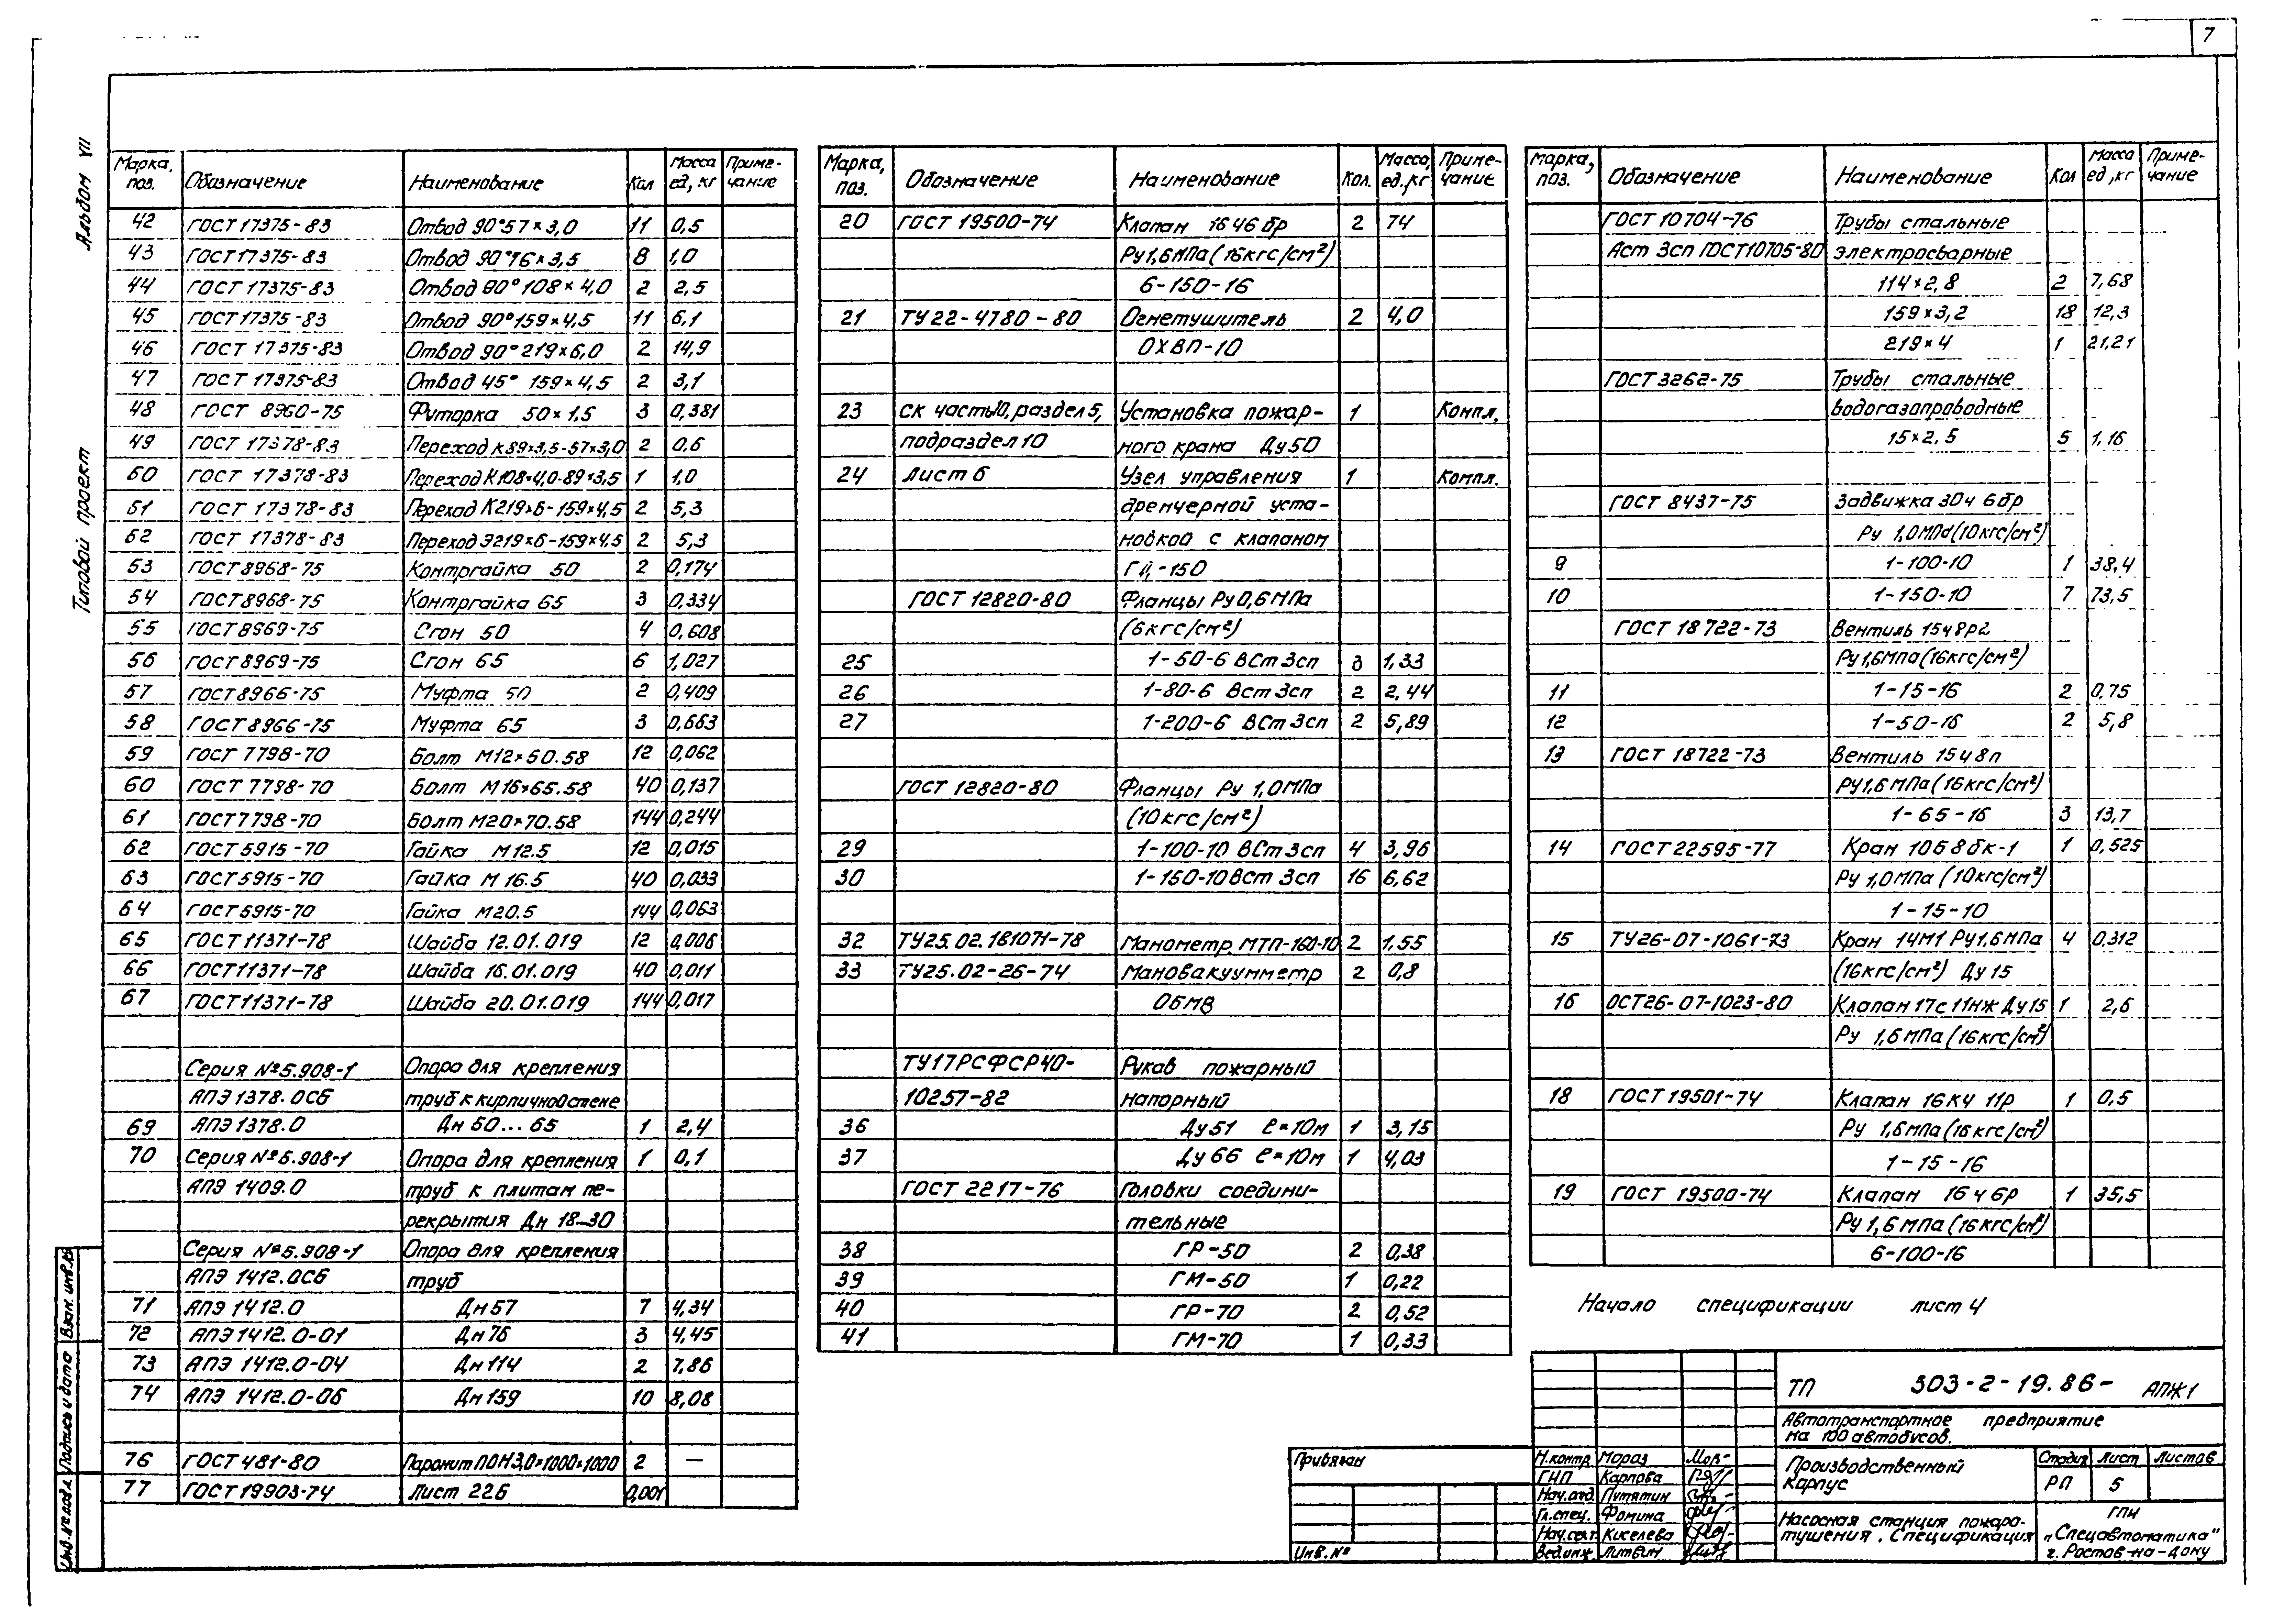 7
Альбом VII
Типовой проект
Марка, поз. Обозначение Наименование Кол Масса ед, кг Примечание
42 ГОСТ 17375-83 Отвод 90°57×3,0 11 0,5
43 ГОСТ 17375-83 Отвод 90°76×3,5 8 1,0
44 ГОСТ 17375-83 Отвод 90°108×4,0 2 2,5
45 ГОСТ 17375-83 Отвод 90°159×4,5 11 6,1
46 ГОСТ 17375-83 Отвод 90°219×6,0 2 14,9
47 ГОСТ 17375-83 Отвод 45° 159×4,5 2 3,1
48 ГОСТ 8960-75 Футорка 50×15 3 0,381
49 ГОСТ 17378-83 Переход К89×3,5-57×3,0 2 0.6
50 ГОСТ 17378-83 Переход К108×4,0-89×3,5 1 1,0
51 ГОСТ 17378-83 Переход К219×6-159×4,5 2 5,3
52 ГОСТ 17378-83 Переход Э219×6-159×4,5 2 5,3
53 ГОСТ 8968-75 Контргайка 50 2 0,174
54 ГОСТ 8968-75 Контргайка 65 3 0,334
55 ГОСТ 8969-75 Сгон 50 4 0,608
56 ГОСТ 8969-75 Сгон 65 6 1,027
57 ГОСТ 8966-75 Муфта 50 2 0,409
58 ГОСТ 8966-75 Муфта 65 3 0,663
59 ГОСТ 7798-70 Болт М12×50.58 12 0,062
60 ГОСТ 7798-70 Болт М16×65.58 40 0,137
61 ГОСТ 7798-70 Болт М20×70.58 144 0,244
62 ГОСТ 5915-70 Гайка М12.5 12 0,015
63 ГОСТ 5915-70 Гайка М16.5 40 0,033
64 ГОСТ 5915-70 Гайка М20.5 144 0,063
65 ГОСТ 11371-78 Шайба 12.01.019 12 0,006
66 ГОСТ 11371-78 Шайба 16.01.019 40 0,011
67 ГОСТ 11371-78 Шайба 20.01.019 144 0,017
Серия №5.908-1 Опора для крепления
АПЭ 1378.0СБ труб к кирпичной стене
69 АПЭ 1378.0 Дн 50...65 1 2,4
70 Серия №5.908-1 Опора для крепления 1 0,1
АПЭ 1409.0 труб к плитам пе-
рекрытия Дн 18...30
Серия №5.908-1 Опора для крепления
АПЭ 1412.0СБ труб
71 АПЭ 1412.0 Дн57 7 4,34
72 АПЭ 1412.0-01 Дн76 3 4,45
73 АПЭ 1412.0-04 Дн114 2 7,86
74 АПЭ 1412.0-06 Дн159 10 8,08
76 ГОСТ 481-80 Паронит ПОН3,0×1000×1000 2 —
77 ГОСТ 19903-74 Лист 2 2Б 0,001
Марка, поз. Обозначение Наименование Кол. Масса, ед.,кг Примечание
20 ГОСТ 19500-74 Клапан 16ч6бр 2 74
Ру1,6МПа (16кгс/см²)
6-150-16
21 ТУ22-4780-80 Огнетушитель 2 4,0
ОХВП-10
23 СК часть10, раздел 5, Установка пожар- 1 Компл.
подраздел 10 ного крана Ду50
24 Лист 6 Узел управления 1 Компл.
дренчерной уста-
новкой с клапаном
ГД-150
ГОСТ 12820-80 Фланцы Ру0,6МПа
(6кгс/см²)
25 1-50-6 ВСт3сп 3 1,33
26 1-80-6 Вст3сп 2 2,44
27 1-200-6 ВСт3сп 2 5,89
ГОСТ 12820-80 Фланцы Ру 1,0МПа
(10кгс/см²)
29 1-100-10 ВСт3сп 4 3,96
30 1-150-10 Вст 3сп 16 6,62
32 ТУ25.02.181071-78 Манометр МТП-160-10 2 1,55
33 ТУ25.02-26-74 Мановакуумметр 2 0,8
ОБМВ
ТУ17РСФСР40- Рукав пожарный
10257-82 напорный
36 Ду51 ℓ=10м 1 3,15
37 Ду66 ℓ=10м 1 4,03
ГОСТ 2217-76 Головки соедини-
тельные
38 ГР-50 2 0,38
39 ГМ-50 1 0,22
40 ГР-70 2 0,52
41 ГМ-70 1 0,33
Марка, поз. Обозначение Наименование Кол Масса ед,кг Примечание
ГОСТ 10704-76 Трубы стальные
Аст 3сп ГОСТ10705-80 электросварные
114×2,8 2 7,68
159×3,2 18 12,3
219×4 1 21,21
ГОСТ 3262-75 Трубы стальные
водогазопроводные
15×2,5 5 1,16
ГОСТ 8437-75 Задвижка 30ч6бр
Ру 1,0МПа(10кгс/см²)
9 1-100-10 1 38,4
10 1-150-10 7 73,5
ГОСТ 18722-73 Вентиль 15ч8р2
Ру1,6МПа(16кгс/см²)
11 1-15-16 2 0,75
12 1-50-16 2 5,8
13 ГОСТ 18722-73 Вентиль 15ч8п
Ру1,6МПа(16кгс/см²)
1-65-16 3 13,7
14 ГОСТ 22595-77 Кран 10Б8бк-1 1 0,525
Ру 1,0МПа (10кгс/см²)
1-15-10
15 ТУ26-07-1061-73 Кран 14М1 Ру1,6МПа 4 0,312
(16кгс/см²) Ду15
16 ОСТ26-07-1023-80 Клапан 17с11нж Ду15 1 2,6
Ру 1,6МПа(16кгс/см²)
18 ГОСТ 19501-74 Клапан 16КЧ 11р 1 0,5
Ру 1,6МПа(16кгс/см²)
1-15-16
19 ГОСТ 19500-74 Клапан 16ч6р 1 35,5
Ру 1,6 МПа (16кгс/см²)
6-100-16
Начало спецификации лист 4
ТП 303-2-19.86- АПЖ1
Автотранспортное предприятие
на 100 автобусов.
Производственный
корпус
Стадия Лист Листов
РП 5
Насосная станция пожаро-
тушения. Спецификация
ГПИ
„Спецавтоматика"
г. Ростов-на-Дону
Н.контр Мораз
ГИП Карпова
Нач.отд. Путятин
Гл.спец. Фомина
Нач.сект Киселева
Вед.инж. Литвин
Привязан
Инв.№
Инв.№ подл. Подпись и дата Взам. инв.№